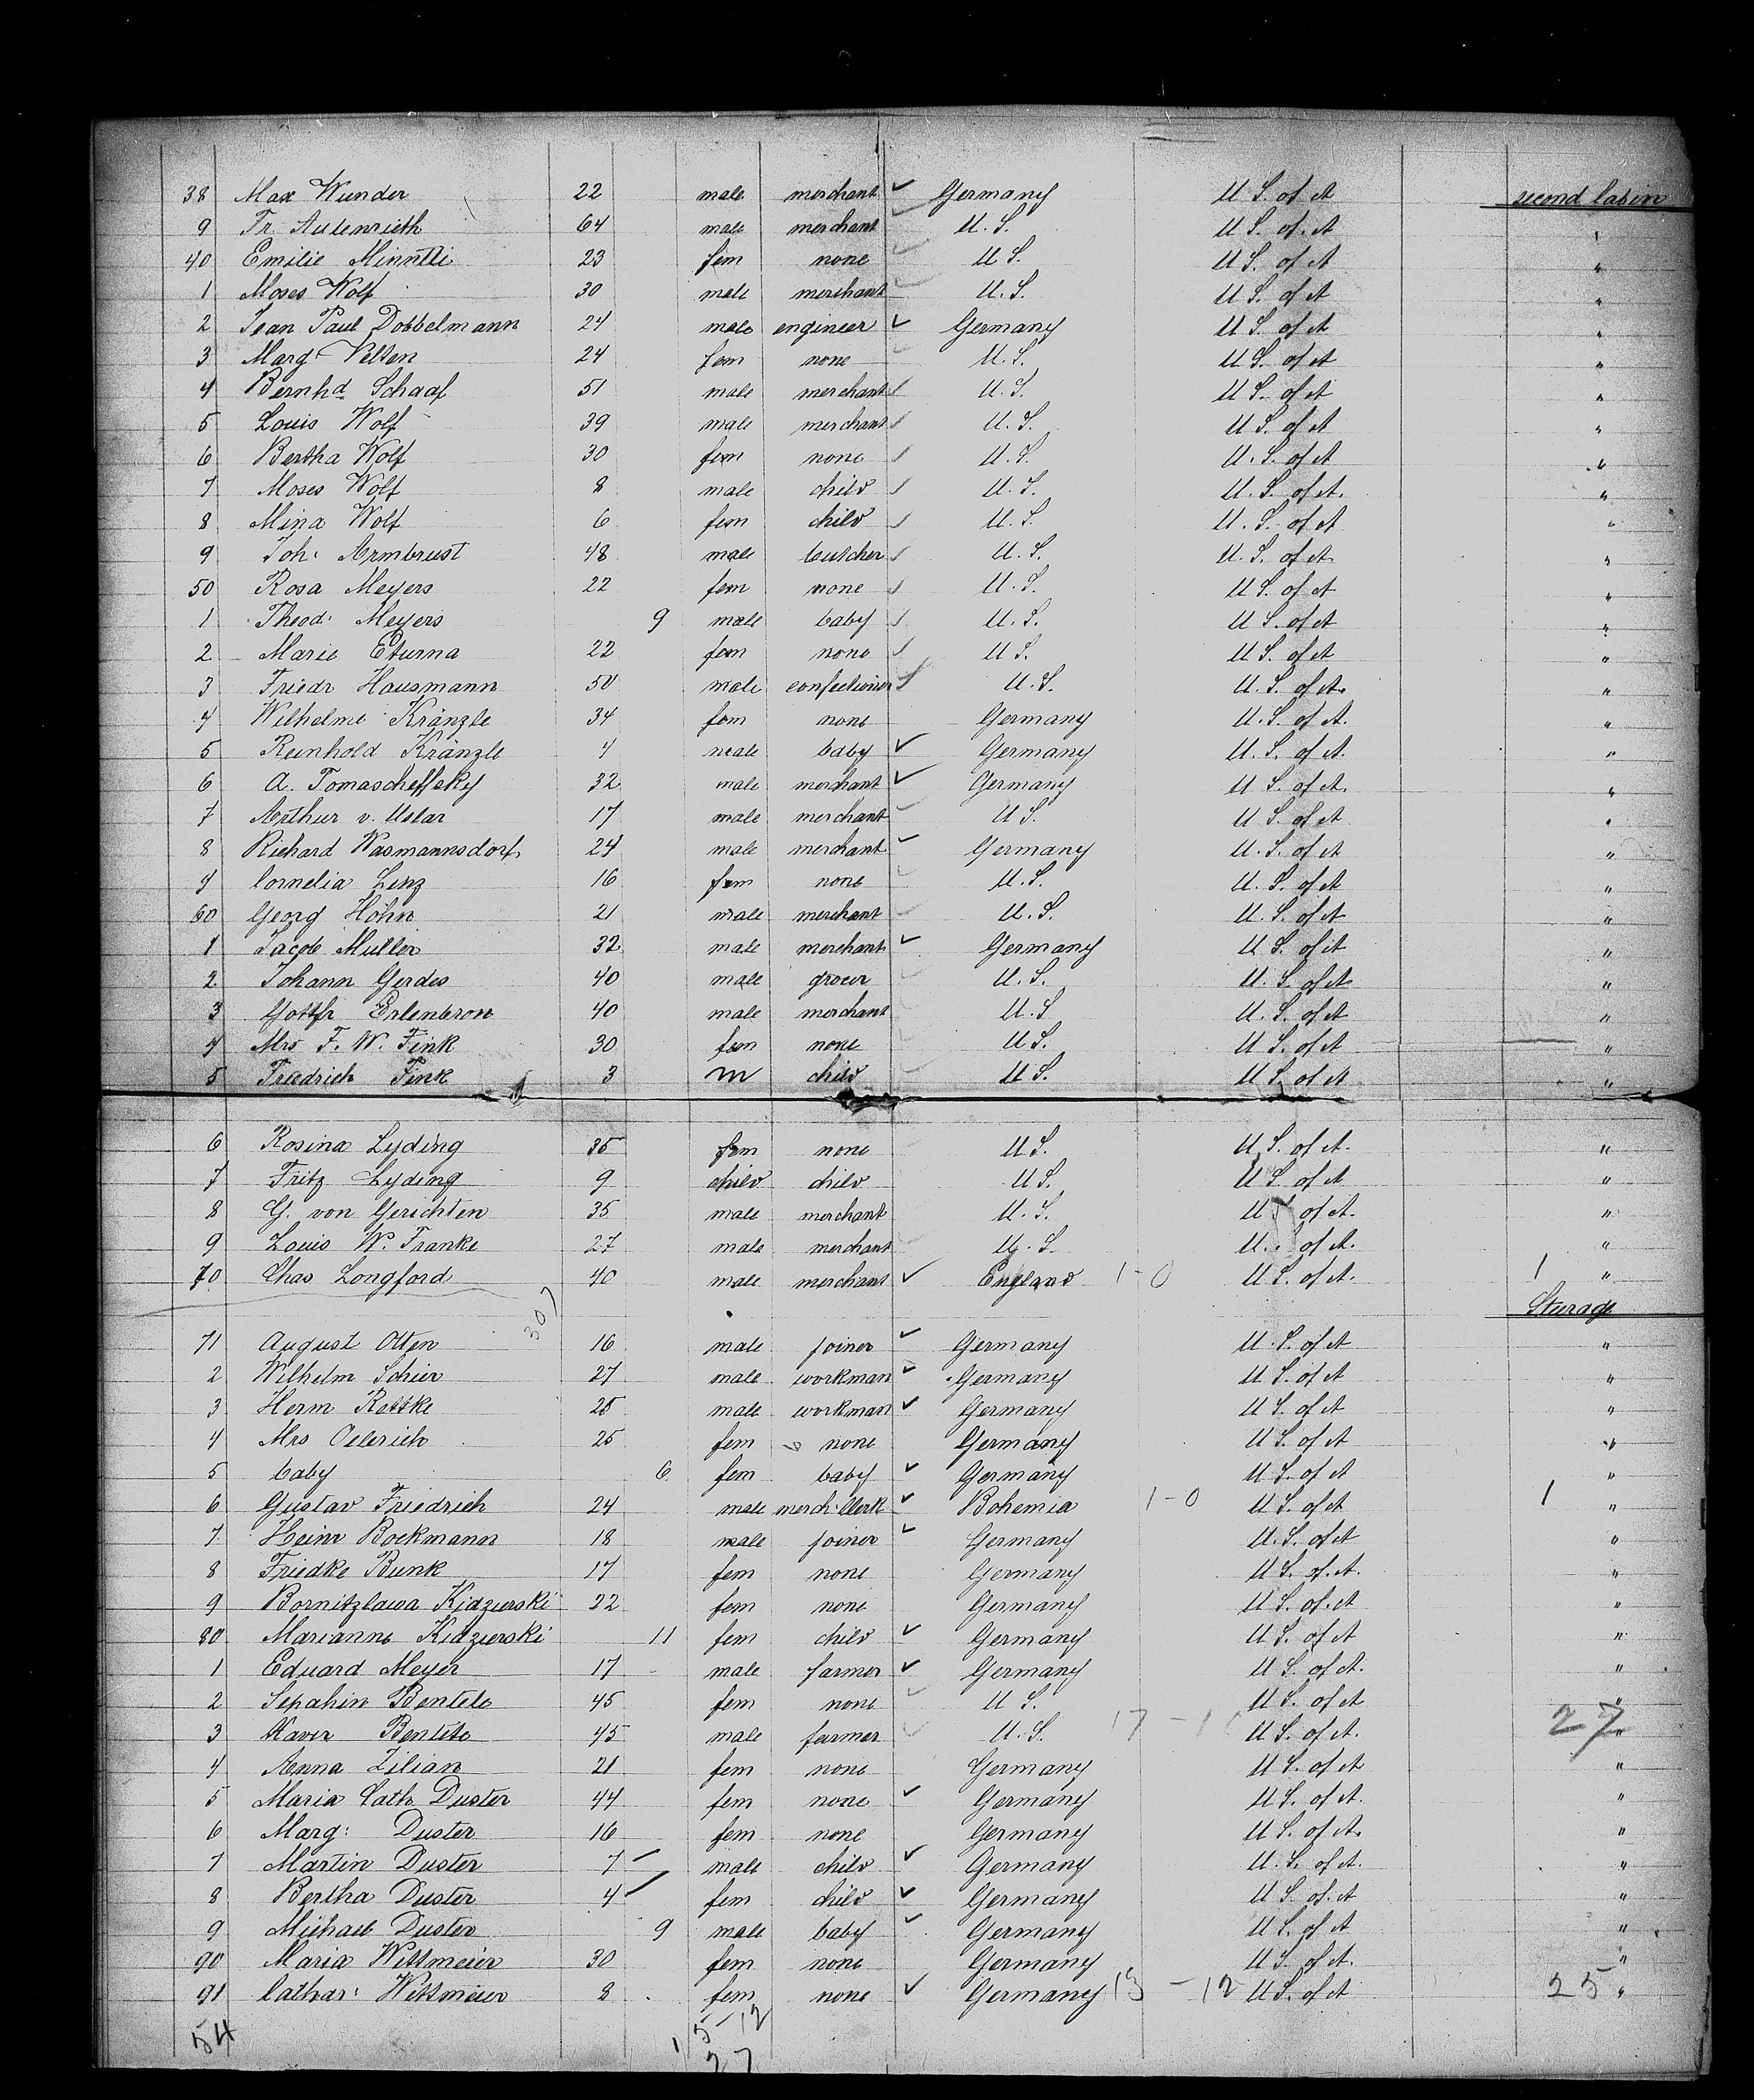 38 Max Wunder 22 male merchant ✓ Germany U S. of A second Cabin
9 Fr. Autenrieth 64 male merchant U. S. U S. of A "
40 Emilie 23 fem none U S. U S. of A "
1 Moses Wolf 30 male merchant U. S. U S. of A "
2 Jean Paul Dobbelmann 24 male engineer ✓ Germany U S. of A "
3 Marg. Velten 24 fem none U. S. U S. of A "
4 Bernhd Schaaf 51 male merchant U. S. U S. of A "
5 Louis Wolf 39 male merchant U. S. U S. of A "
6 Bertha Wolf 30 fem none U. S. U. S. of A "
7 Moses Wolf 8 male child U. S. U. S. of A. "
8 Mina Wolf 6 fem child U. S. U. S. of A "
9 Joh: Armbrust 48 male butcher U. S. U. S. of A "
50 Rosa Meyers 22 fem none U. S. U S. of A "
1 Theod. Meyers 9 male baby U. S. U S. of A "
2 Marie Eturna 22 fem none U S. U S. of A "
3 Friedr Hausmann 50 male confectioner U. S. U. S. of A. "
4 Wilhelme Kränzle 34 fem none Germany U. S. of A. "
5 Reinhold Kränzle 4 male baby ✓ Germany U. S. of A. "
6 A. Tomascheffsky 32 male merchant ✓ Germany U S. of A. "
7 Arthur v. Uslar 17 male merchant U S. U S. of A "
8 Richard Wasmannsdorf 24 male merchant ✓ Germany U. S. of A "
9 Cornelia Lenz 16 fem none U. S. U. S. of A "
60 Georg Höhn 21 male merchant U. S. U. S. of A "
1 Jacob Muller 32 male merchant ✓ Germany U S. of A "
2 Johann Gerdes 40 male grocer U. S. U. S. of A "
3 Gottfr Erlenbron 40 male merchant U. S U. S. of A "
4 Mrs F. W. Fink 30 fem none U S. U S. of A "
5 Friedrich Fink 3 m child U S. U S. of A "
6 Rosina Lyding 35 fem none U S. U S. of A. "
7 Fritz Lyding 9 child child U S. U S of A "
8 G. von Gerichten 35 male merchant U. S. U S of A. "
9 Louis W. Franke 27 male merchant U. S. U. S of A. "
70 Chas Longford 40 male merchant ✓ England 1-0 U S. of A. 1 "
307 Sturage
71 August Otten 16 male joiner ✓ Germany U. S. of A "
2 Wilhelm Schier 27 male workman ✓ Germany U S. of A "
3 Herm Retzke 25 male workman ✓ Germany U S. of A "
4 Mrs Oelerich 25 fem none Germany U S. of A "
5 baby 6 fem baby ✓ Germany U S. of A "
6 Gustav Friedrich 24 male merch: Clerk ✓ Bohemia 1-0 U S. of A 1 "
7 Heinr Bockmann 18 male joiner ✓ Germany U. S. of A "
8 Friedke Bunk 17 fem none Germany U S. of. A. "
9 Bornitzlawa Kidzierski 22 fem none Germany U S. of. A "
80 Marianne Kidzierski 11 fem child ✓ Germany U S. of A "
1 Eduard Meyer 17 male farmer ✓ Germany U S. of A. "
2 Sephin Bentele 45 fem none U S. U S. of A "
3 Xaver Bentele 45 male farmer U. S. 17 - 1 U S. of A. 27 "
4 Anna Zilian 21 fem none Germany U S. of A "
5 Maria Cath. Duster 44 fem none ✓ Germany U S. of A. "
6 Marg: Duster 16 fem none Germany U S. of A. "
7 Martin Duster 7 male child ✓ Germany U. S. of A. "
8 Bertha Duster 4 fem child ✓ Germany U S. of. A "
9 Michael Duster 9 male baby ✓ Germany U S. of A "
90 Maria Wittmeier 30 fem none Germany U S. of A. "
91 Cathar: Wittmeier 8 fem none ✓ Germany 13 - 12 U S. of A 25 "
54 1 5-12
27